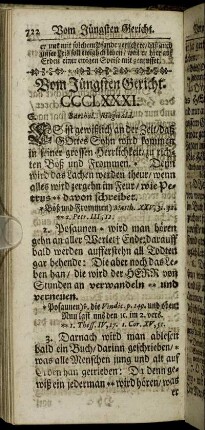 722 Vom Jüngsten Gericht.
er mit mir solchen
Erden einer ewigen Speise mit genüsset.
Vom Jüngsten Gericht.
CCCLXXXI.
Barthol. Ringwald.
ES ist gewißlich an der Zeit/ daß
GOttes Sohn wird kommen
in seiner grossen Herrlichkeit/ zu richten
Böß und Frommen. Dann
wird das Lachen werden theur/ wenn
alles wird zergehn im Feur/ wie Petrus
davon schreiber.
* Böß und Frommen) Matth. XXV, 31. 32.
2. Petr. III, 12.
2. Posaunen * wird man hören
gehn an aller Werlet Ende: darauff
bald werden aufferstehn all Todten
gar behende: Die aber noch das Leben
han/ die wird der HERR von
Stunden an verwandeln
und verneuen.
* Posaunen)
1. Thess. IV, 17. 1. Cor. XV, 51.
3. Darnach wird man ablesen
bald ein Buch/ darinn geschrieben/
was alle Menschen jung und alt auf
Erden han getrieben: Da denn gewiß
ein jederman * wird hören/ was
er